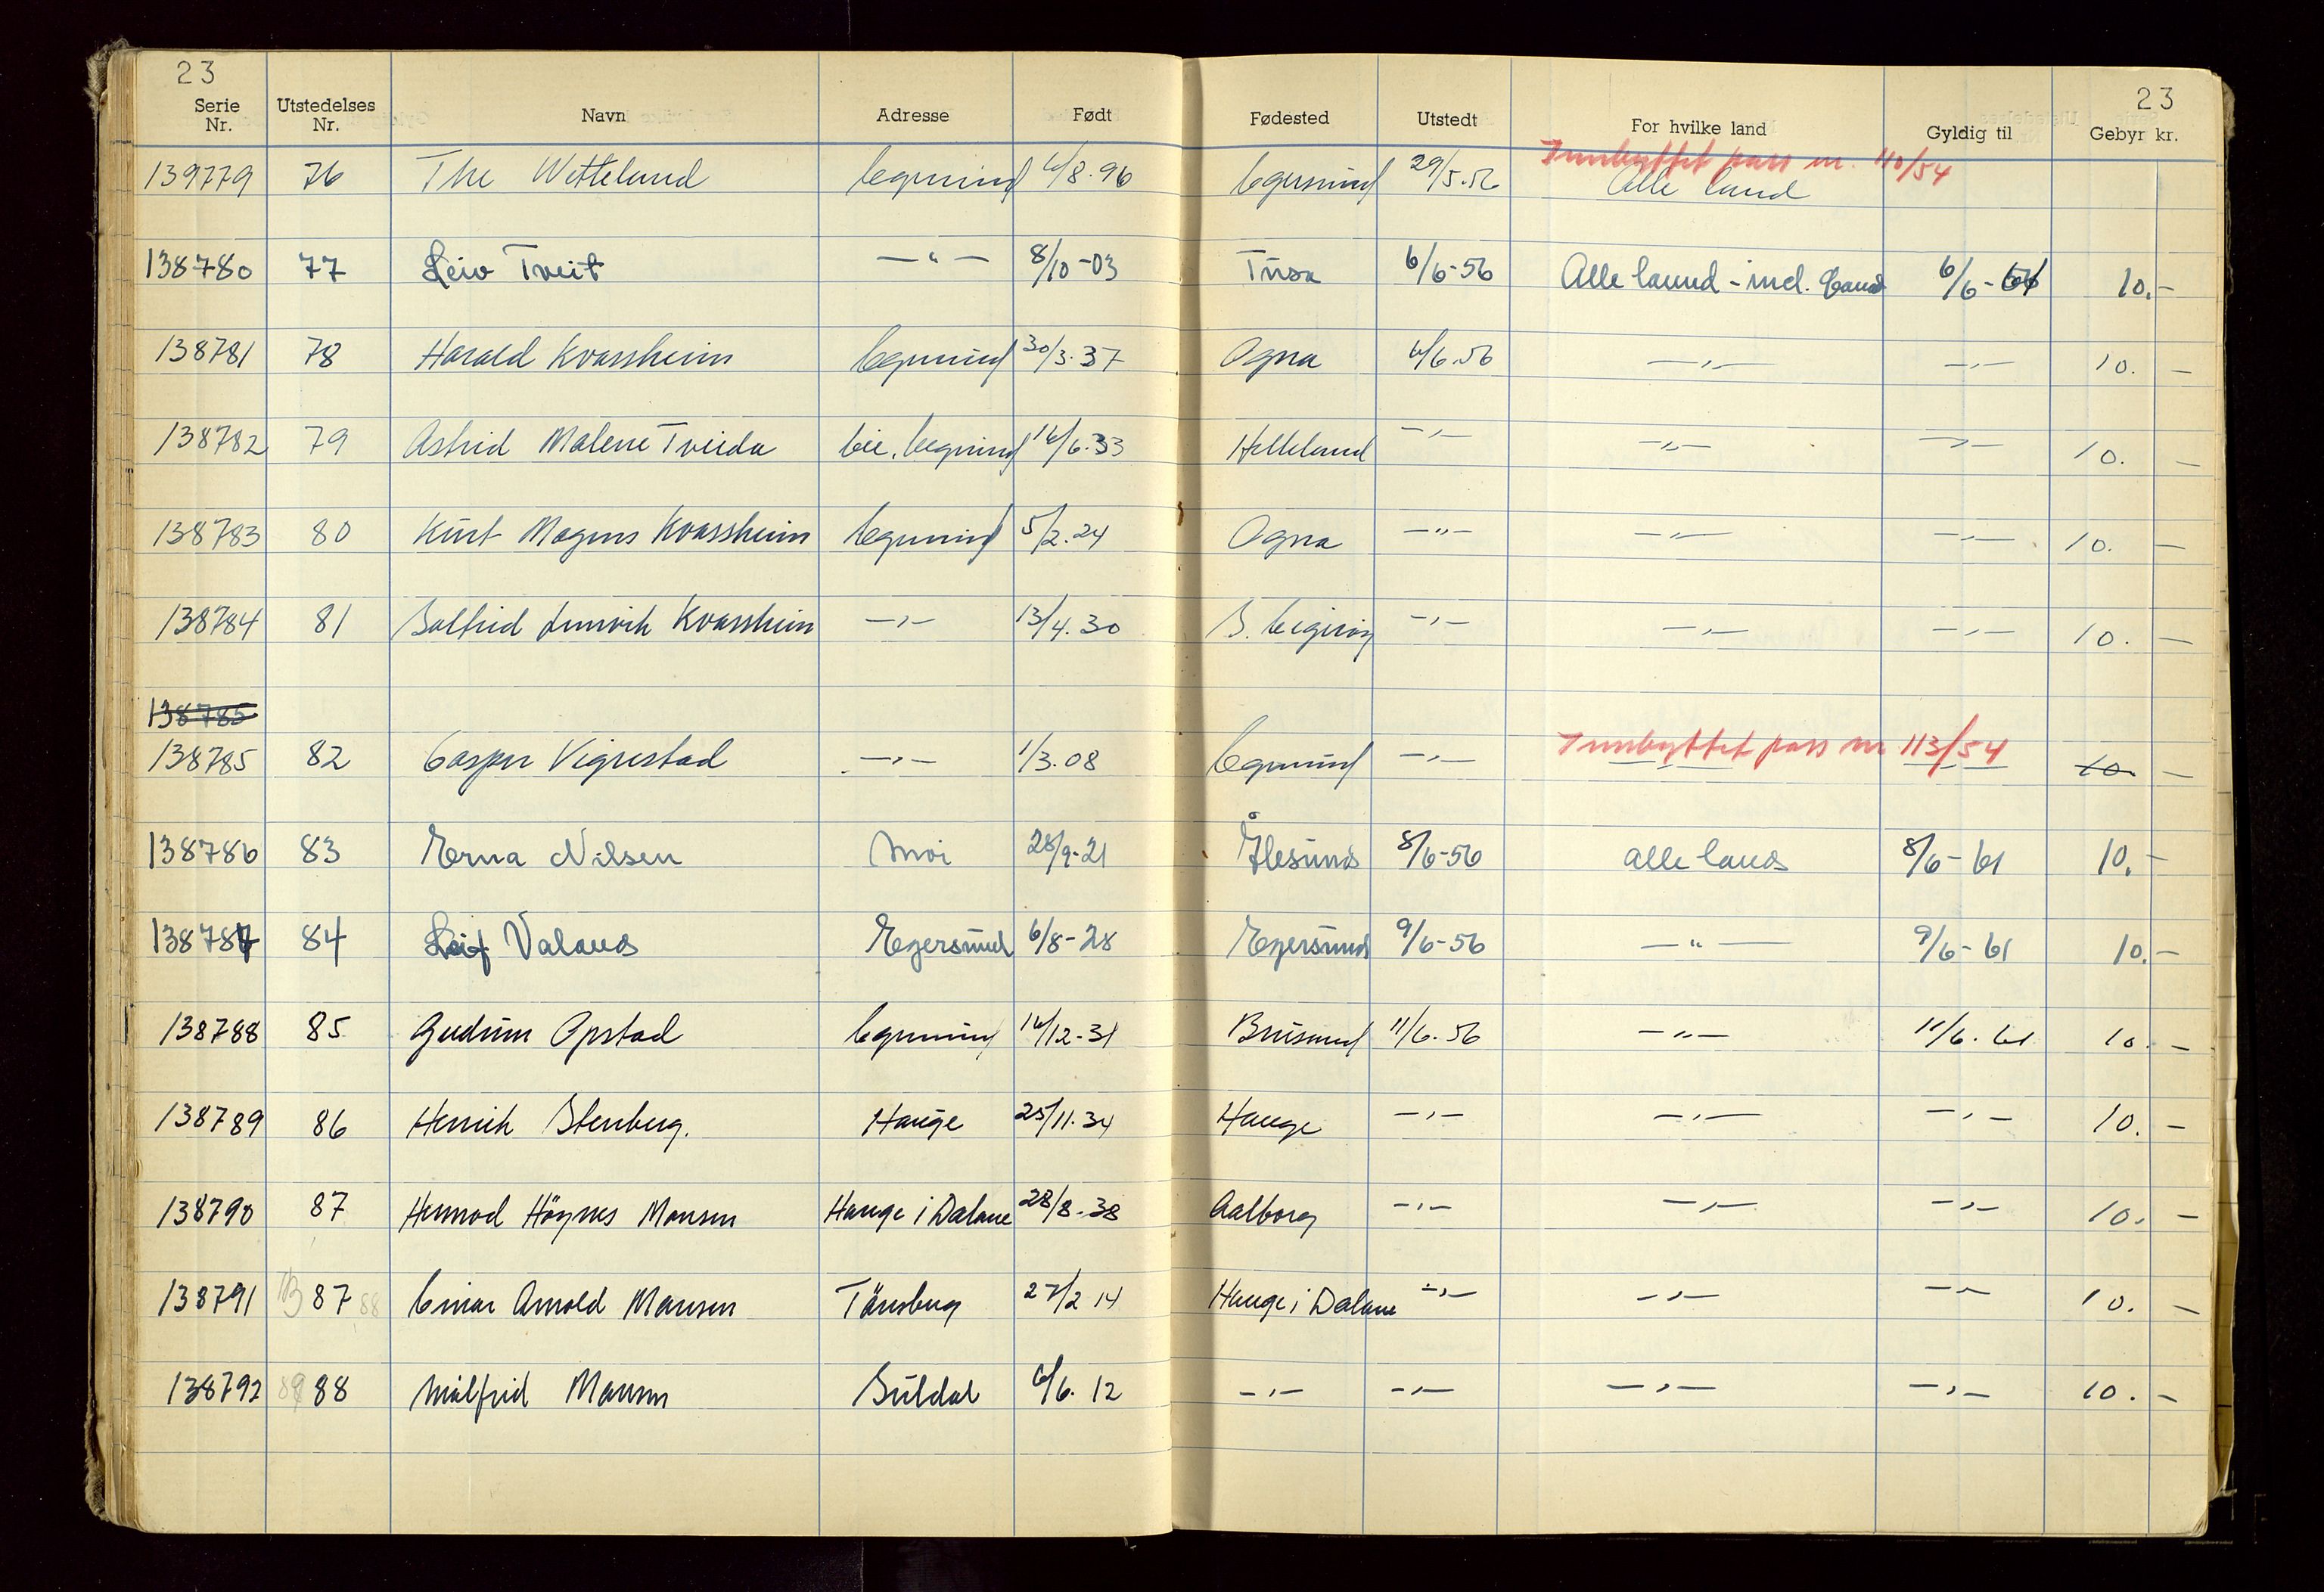 23 23
Serie Nr. Utstedelses Nr. Navn Adresse Født Fødested Utstedt For hvilke land Gyldig til Gebyr kr.
Innbyttet pass nr. 110/54
139779 76 The Wetteland Egersund 6/8.96 Egersund 29/5.56 Alle land
138780 77 Leiv Tveit —"— 8/10-03 6/6-56 Alle laund - incl. 6/6-61 10.-
138781 78 Harald Kvassheim Egersund 30/3.37 Ogna 6/6.56 —"— —"— 10. —
138782 79 Astrid Malene Tveida Eie, Egersund 16/6.33 Helleland —"— —"— —"— 10. —
138783 80 Kurt Magnus Kvassheim Egersund 5/2.24 Ogna —"— —"— —"— 10. —
138784 81 Solfrid Kvassheim —"— 13/4.30 S. Eigerøy —"— —"— —"— 10. —
138785
Innbyttet pass nr 113/54
138785 82 Casper Vigrestad —"— 1/3.08 Egersund —"— 10. —
138786 83 Erna Nilsen Moi 28/9-21 Ålesund 8/6-56 alle land 8/6-61 10.-
138787 84 Leif Valand Egersund 6/8-28 Egersund 9/6-56 —"— 9/6-61 10.-
138788 85 Gudrun Opstad Egersund 16/12-31 Brusand 11/6.56 —"— 11/6.61 10. —
138789 86 Henrik Stenberg. Hauge 25/11.34 Hauge —"— —"— —"— 10. —
138790 87 Hermod Höynes Monsen Hauge i Dalane 28/8.38 Aalborg —"— —"— —"— 10. —
138791 87 88 Einar Arnold Monsen Tönsberg 27/2 14 Hauge i Dalane —"— —"— —"— 10. —
138792 89 88 Målfrid Monsen Suldal 6/6.12 —"— —"— —"— —"— 10. —